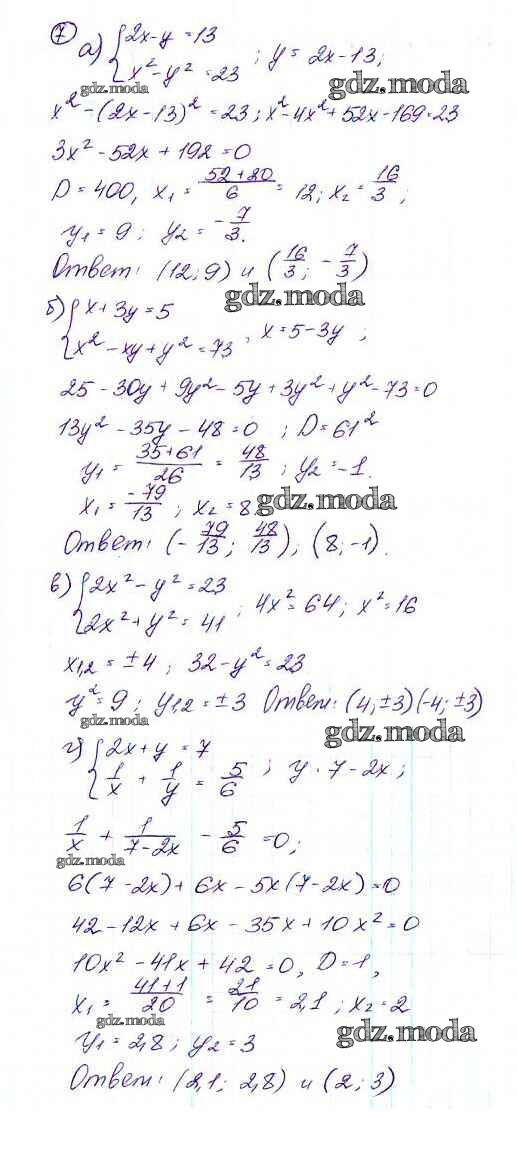 7 а) { 2x - y = 13
x² - y² = 23 ; y = 2x - 13;
gdz.moda
gdz.moda
x² - (2x - 13)² = 23; x² - 4x² + 52x - 169 = 23
3x² - 52x + 192 = 0
D = 400, x₁ = (52 + 20)/6 = 12; x₂ = 16/3;
y₁ = 9; y₂ = -7/3.
Ответ: (12; 9) и (16/3; -7/3)
gdz.moda
б) { x + 3y = 5
x² - xy + y² = 73, x = 5 - 3y ;
25 - 30y + 9y² - 5y + 3y² + y² - 73 = 0
13y² - 35y - 48 = 0 ; D = 61²
y₁ = (35 + 61)/26 = 48/13 ; y₂ = -1.
x₁ = -79/13 ; x₂ = 8
gdz.moda
Ответ: (-79/13; 48/13); (8; -1).
в) { 2x² - y² = 23
2x² + y² = 41 ; 4x² = 64; x² = 16
x₁,₂ = ±4 ; 32 - y² = 23
y² = 9 ; y₁,₂ = ±3 Ответ: (4; ±3)(-4; ±3)
gdz.moda
gdz.moda
г) { 2x + y = 7
1/x + 1/y = 5/6 ; y · 7 - 2x;
1/x + 1/(7 - 2x) - 5/6 = 0;
gdz.moda
6(7 - 2x) + 6x - 5x(7 - 2x) = 0
42 - 12x + 6x - 35x + 10x² = 0
10x² - 41x + 42 = 0, D = 1,
x₁ = (41 + 1)/20 = 21/10 = 2,1 ; x₂ = 2
gdz.moda
gdz.moda
y₁ = 2,8 ; y₂ = 3
Ответ: (2,1; 2,8) и (2; 3)